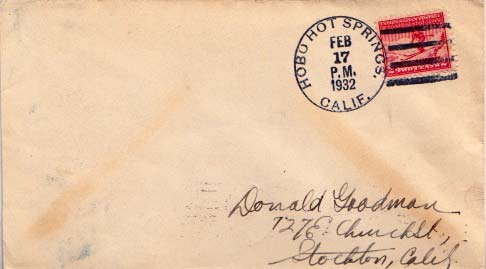 HOBO HOT SPRINGS,
FEB
17
P.M.
1932
CALIF.
Donald Goodman
727 E. Church St,
Stockton, Calif.